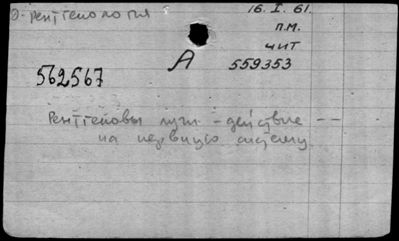 Э-рентгенология
16.I.61.
п.м.
чит
А 559353
562567
Рентгеновы лучи - действие --
на нервную систему.